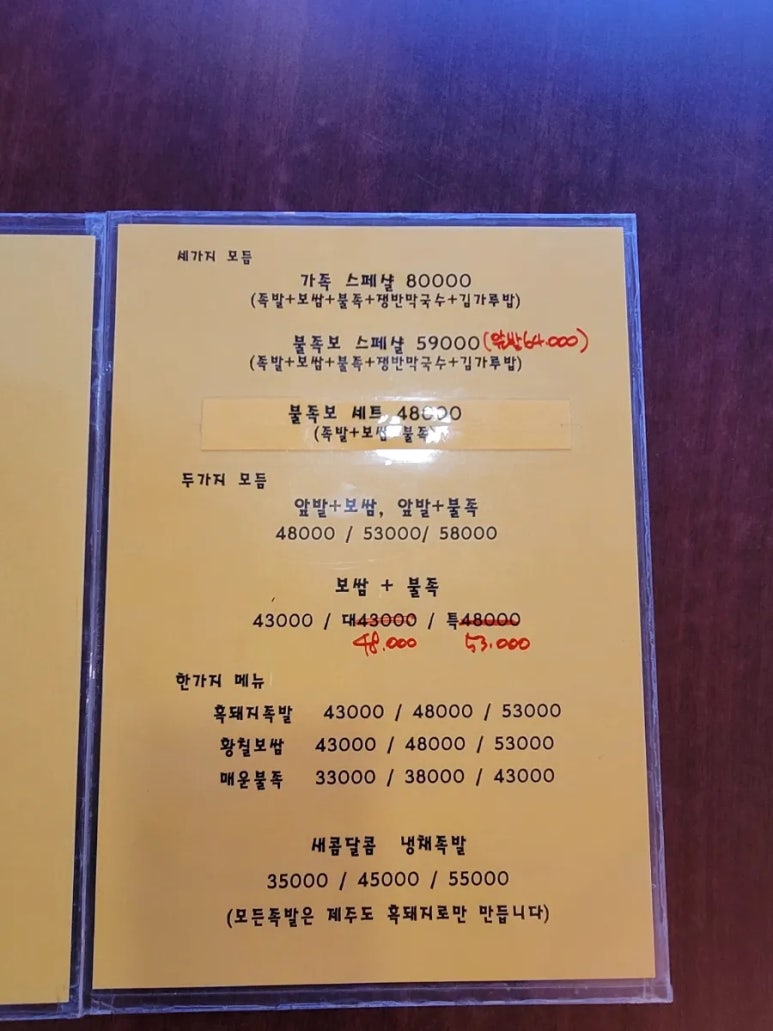 세가지 모듬
가족 스페샬 80000
(족발+보쌈+불족+쟁반막국수+김가루밥)
불족보 스페샬 59000(앞발64.000)
(족발+보쌈+불족+쟁반막국수+김가루밥)
불족보 세트 48000
(족발+보쌈+불족)
두가지 모듬
앞발+보쌈, 앞발+불족
48000 / 53000/ 58000
보쌈 + 불족
43000 / 대43000 / 특48000
48.000 53.000
한가지 메뉴
흑돼지족발 43000 / 48000 / 53000
황칠보쌈 43000 / 48000 / 53000
매운불족 33000 / 38000 / 43000
새콤달콤 냉채족발
35000 / 45000 / 55000
(모든족발은 제주도 흑돼지로만 만듭니다)